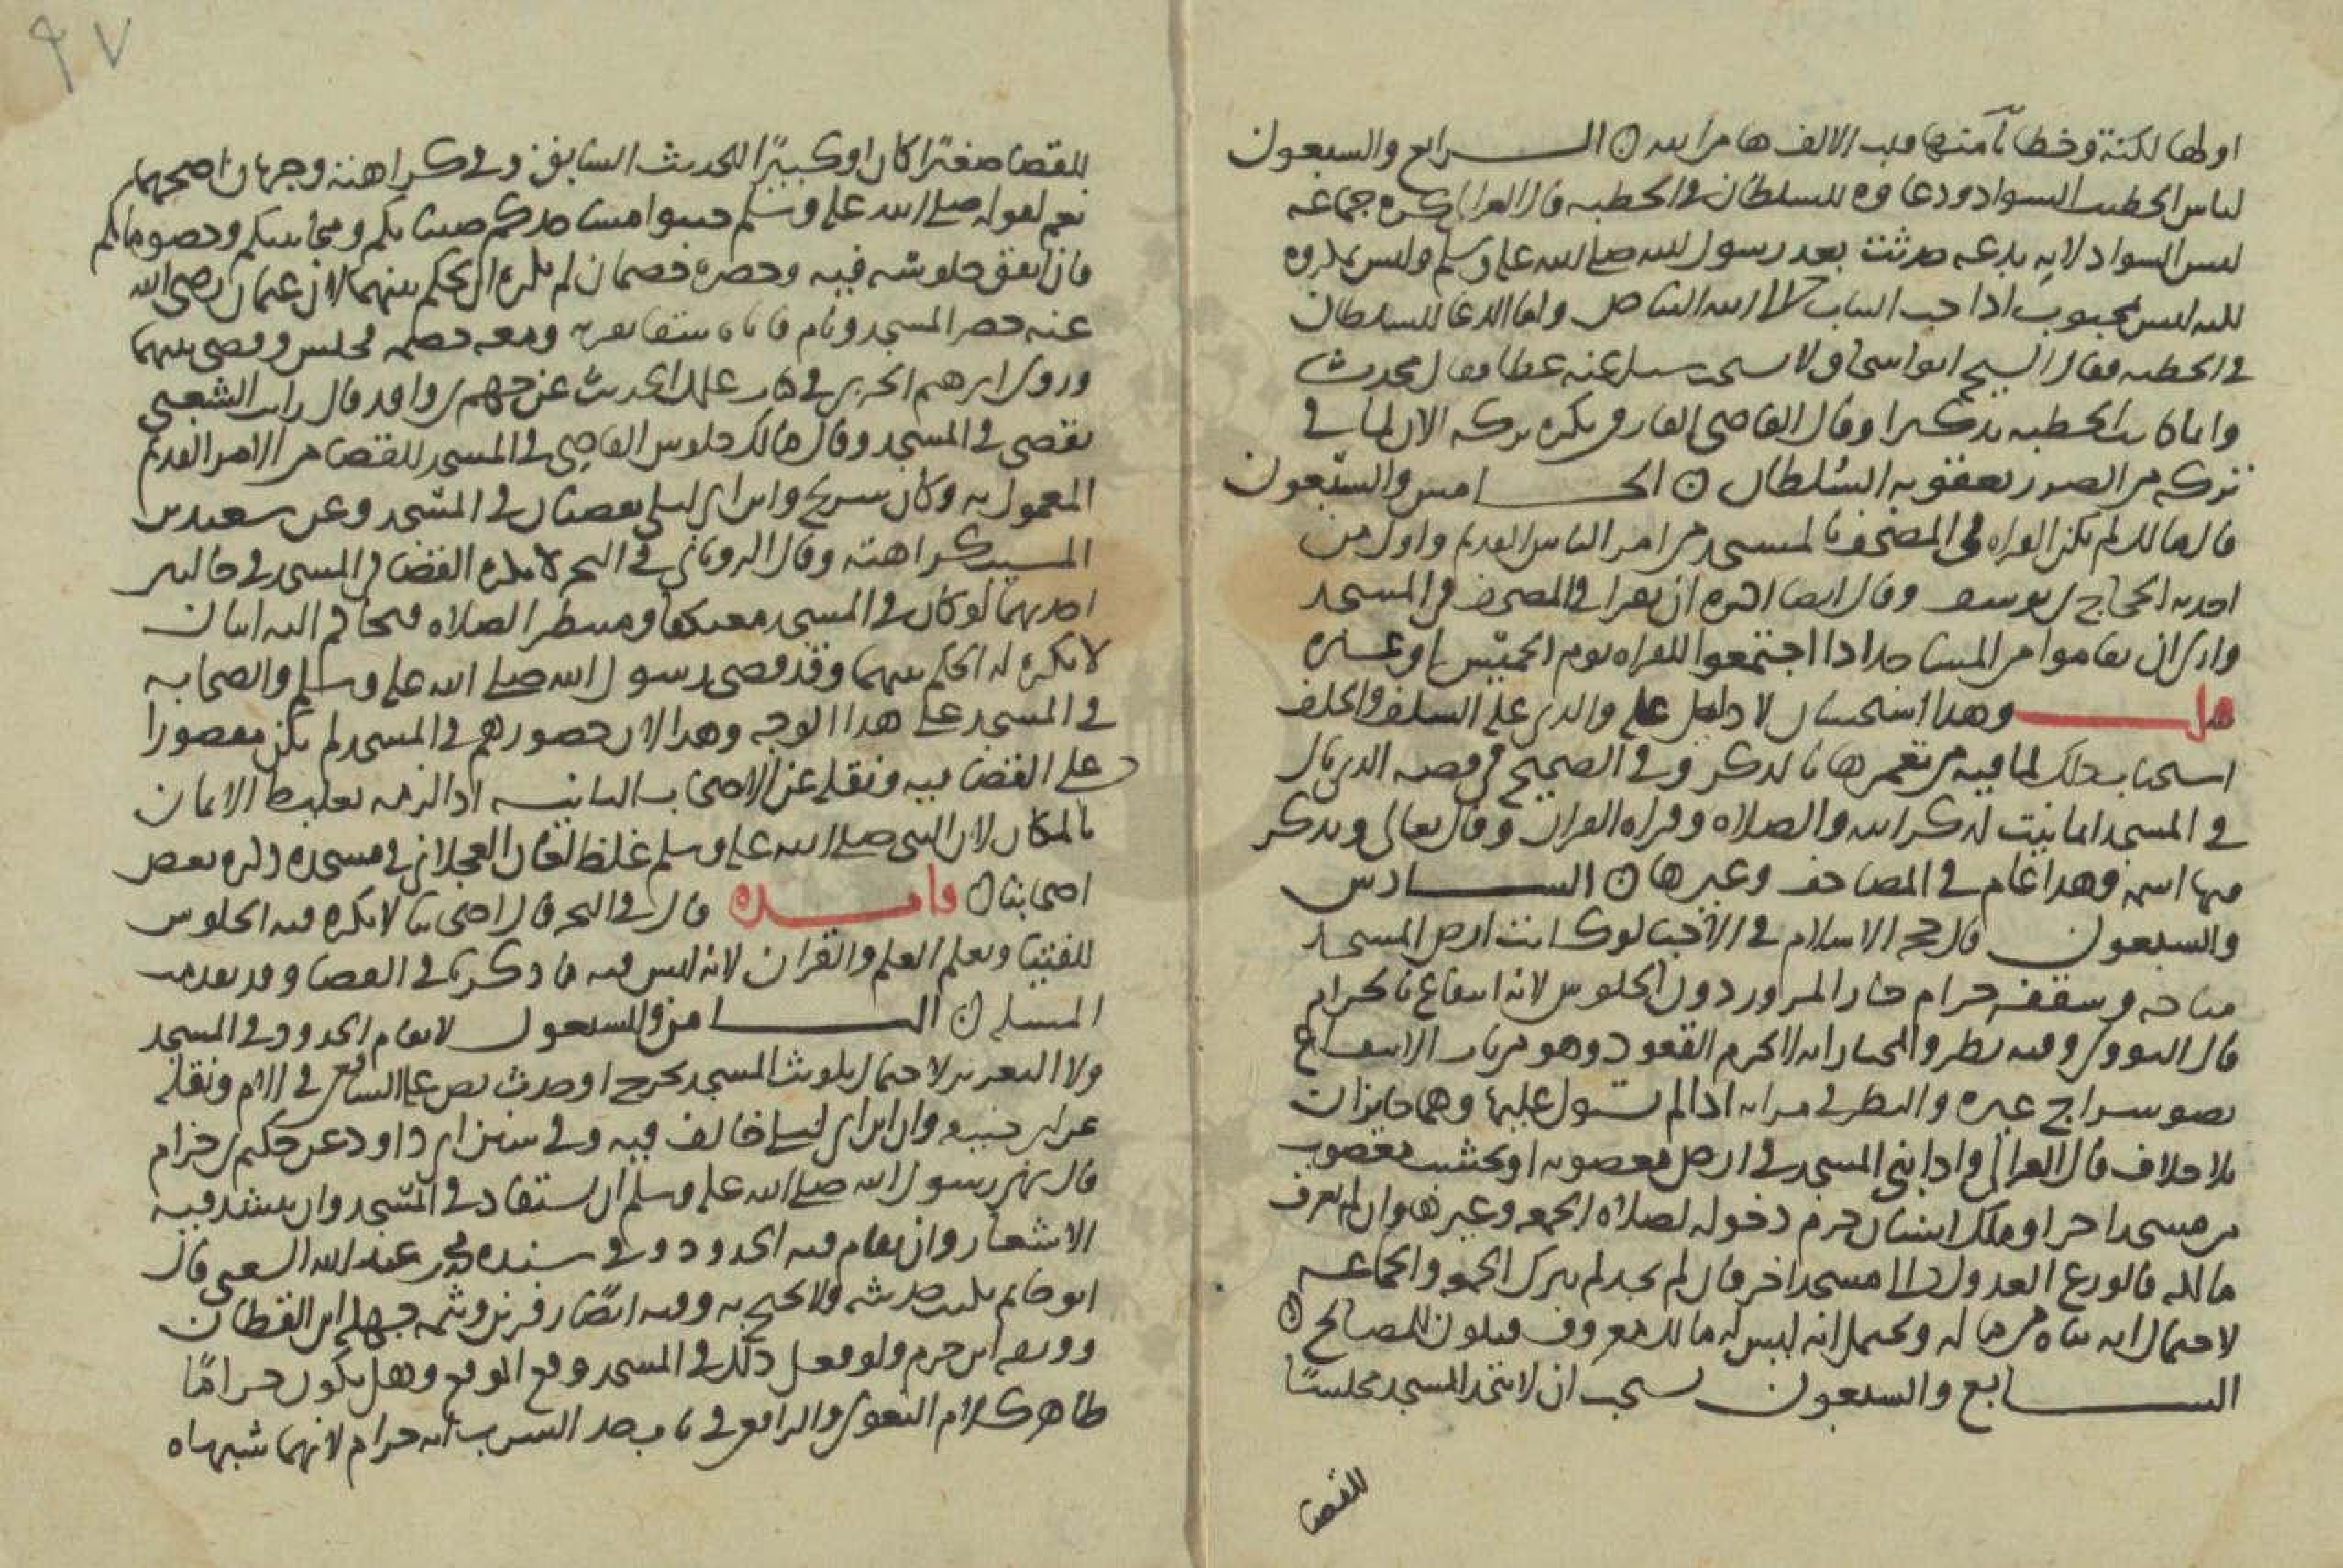 اولها لكنة وخطا منها قلب الالف هامر الله ۞ الـــرابع والسبعون
لباس الخطيب السواد ودعاوه للسلطان في الخطبه قال الغزالي كره جماعه
لبس السواد لانه بدعه حدثت بعد رسول الله صلى الله عليه وسلم وليس بمكروه
لكنه ليس بمحبوب اذا حب الثياب الى الله البياض واما الدعا للسلطان
في الخطبه فقال الشيخ ابو اسحاق ولا يستحب سئل عنه عطا فقال محدث
وانما كانت الخطبه تذكيرا وقال القاضي الفارقي يكره تركه الان لما في
تركه من الضرر بعقوبه السلطان ۞ الخـــامس والسبعون
قال مالك لم تكن القراه في المصحف بالمسجد من امر الناس القديم واول من
احدثه الحجاج بن يوسف وقال ايضا اكره ان يقرا في المصحف في المسجد
وارى ان يقاموا من المساجد اذا اجتمعوا للقراه يوم الخميس او غيره
قلـــت وهذا استحسان لا دليل عليه والذي عليه السلف والخلف
استحباب ذلك لما فيه من تعميرها بالذكر وفي الصحيح في قصه الذي بال
في المسجد انما بنيت لذكر الله والصلاه وقراه القران وقال تعالى ويذكر
فيها اسمه وهذا عام في المصاحف وغيرها ۞ الســـادس
والسبعون قال حجه الاسلام في الاحيا لو كانت ارض المسجد
مباحه وسقفه حرام جاز المرور دون الجلوس لانه انتفاع بالحرام
قال النووي وفيه نظر والمختار انه لا يحرم القعود وهو من باب الانتفاع
بضو سراج غيره والنظر في مراته اذا لم يستول عليها وهما جايزان
بلا خلاف قال الغزالي واذا بني المسجد في ارض مغصوبه او بخشب مغصوب
من مسجد اخر او ملك انسان حرم دخوله لصلاه الجمعه وغيرها وان لم يعرف
مالكه فالورع العدول الى مسجد اخر فان لم يجد لم يترك الجمعه والجماعه
لاحتمال انه بناه من ماله ويحتمل انه ليس له مالك معروف فيكون للمصالح ۞
الســـابع والسبعون يستحب ان لا يتخذ المسجد مجلسا
للقضا
٩٧
للقضا صغيرا كان او كبيرا للحديث السابق وفي كراهته وجهان اصحهما
نعم لقوله صلى الله عليه وسلم جنبوا مساجدكم صبيانكم ومجانينكم وخصوماتكم
فان اتفق جلوسه فيه وحضره خصمان لم يكره ان يحكم بينهما لان عثمان رضي الله
عنه حضر المسجد ونام فاتاه سقا بقربه ومعه خصمه فجلس وقضى بينهما
وروى ابرهيم الحربي في كتاب علل الحديث عن جهم بن واقد قال رايت الشعبي
يقضي في المسجد وقال مالك جلوس القاضي في المسجد للقضا من الامر القديم
المعمول به وكان شريح وابن ابي ليلى يقضيان في المسجد وعن سعيد بن
المسيب كراهته وقال الروياني في البحر لا يكره القضا في المسجد في حالتين
احديهما لو كان في المسجد معتكفا ومنتظر الصلاه فتحاكم اليه اثنان
لا يكره له الحكم بينهما وقد قضى رسول الله صلى الله عليه وسلم والصحابه
في المسجد على هذا الوجه وهذا لان حضورهم في المسجد لم يكن مقصورا
على القضا فيه ونقله عن الاصحاب الثانيه اذا لزمه تغليظ الايمان
بالمكان لان النبي صلى الله عليه وسلم غلظ لعان العجلاني في مسجده ذكره بعض
اصحابنا ۞ فايـــده قال في البحر قال اصحابنا لا يكره فيه الجلوس
للفتيا وتعلم العلم والقران لانه ليس فيه ما ذكرنا في القضا وقد تقدمت
المسله ۞ الثـــامن والسبعون لا يقام الحدود في المسجد
ولا التعزير لاحتمال تلوث المسجد بجرح او حدث نص عليه الشافعي في الام ونقله
عن ابي حنيفه وان ابن ابي ليلى خالف فيه وفي سنن ابي داود عن حكيم بن حزام
قال نهى رسول الله صلى الله عليه وسلم ان يستقاد في المسجد وان ينشد فيه
الاشعار وان يقام فيه الحدود وفي سنده محمد بن عبد الله الشعيثي قال
ابو حاتم يكتب حديثه ولا يحتج به وفيه ايضا زفر بن وثيمه جهله ابن القطان
ووثقه ابن حزم ولو فعل ذلك في المسجد وقع الموقع وهل يكون حراما
ظاهر كلام البغوي والرافعي في باب حد الشرب انه حرام لانهما شبهاه